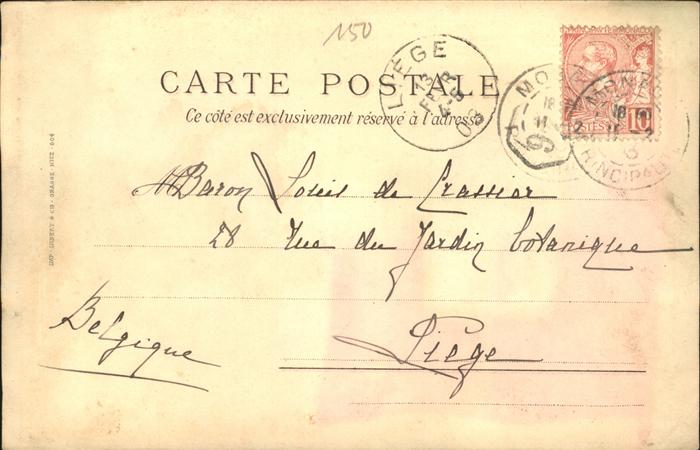 150
LIEGE
13
FEVR
4-S
06
CARTE POSTALE
Ce côté est exclusivement réservé à l'adresse
10
PRINCIPAU
M Baron Louis de Crassier
28 Rue du Jardin botanique
Liège
Belgique